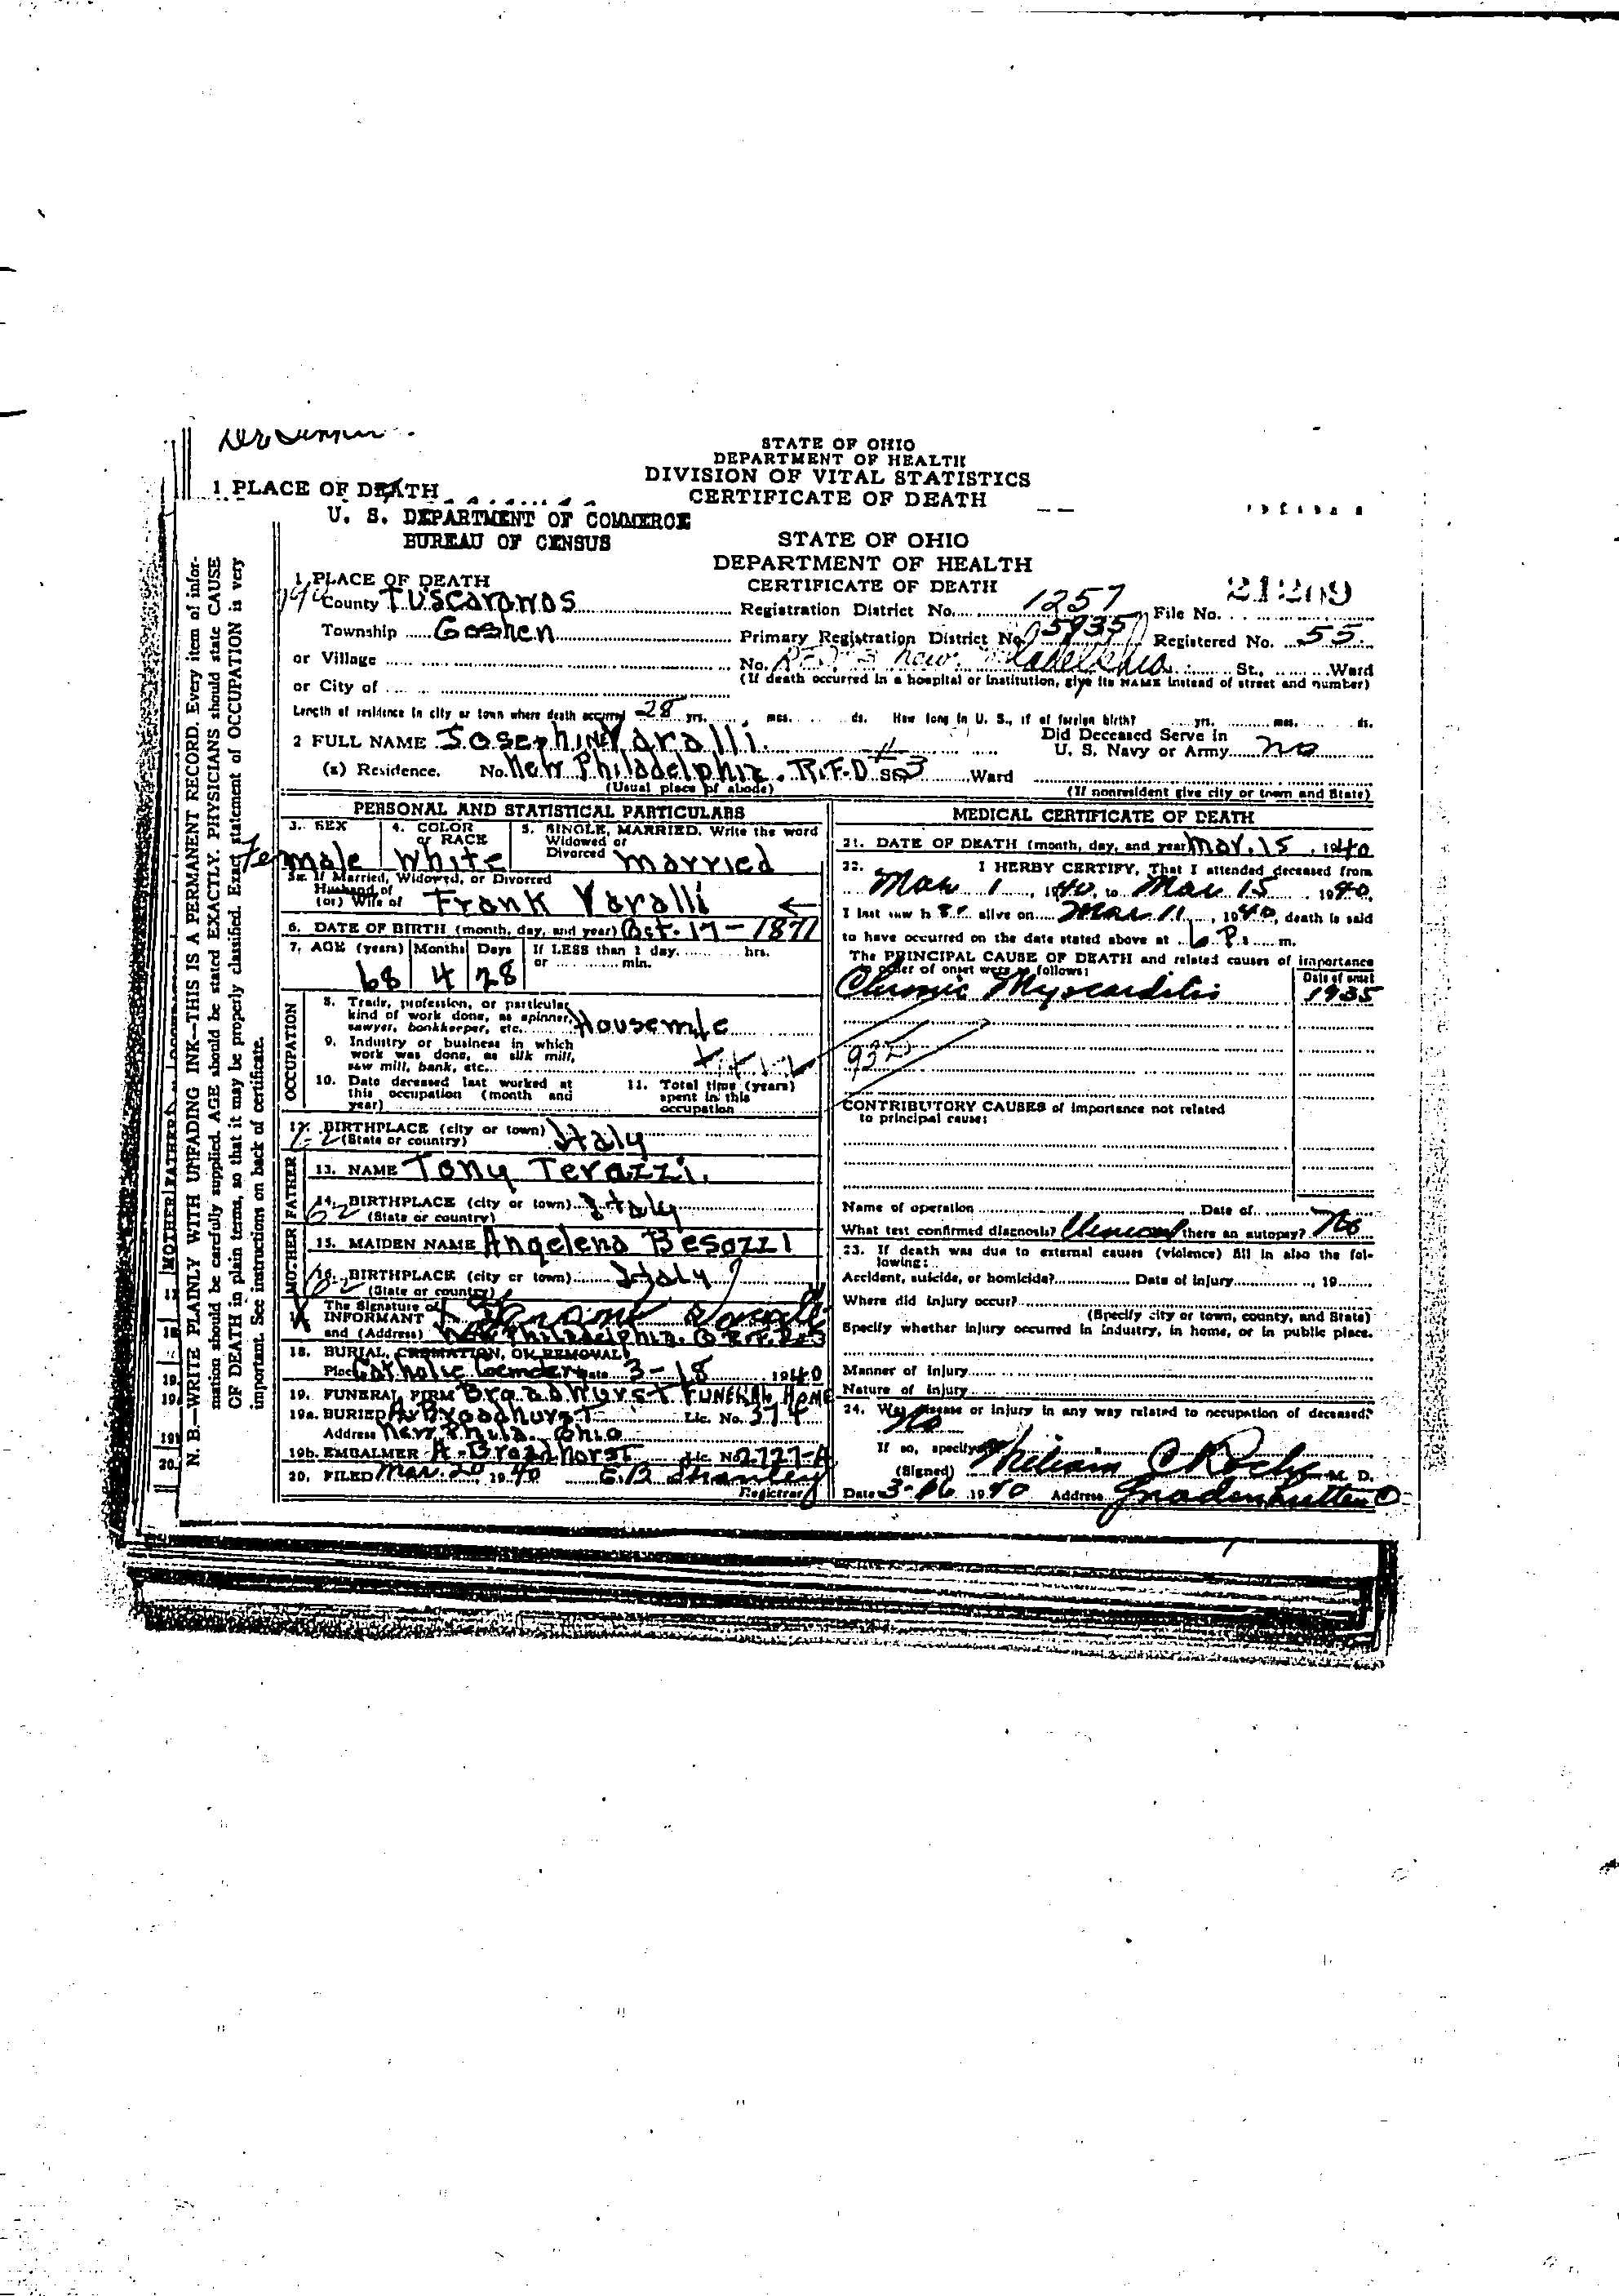 STATE OF OHIO
DEPARTMENT OF HEALTH
DIVISION OF VITAL STATISTICS
CERTIFICATE OF DEATH
1 PLACE OF DEATH
U. S. DEPARTMENT OF COMMERCE
BUREAU OF CENSUS
STATE OF OHIO
DEPARTMENT OF HEALTH
CERTIFICATE OF DEATH
1. PLACE OF DEATH
County Tuscarawas Registration District No. 1257 File No. 21209
Township Goshen Primary Registration District No. 5935 Registered No. 55
or Village No. New Philadelphia St., Ward
(If death occurred in a hospital or institution, give its NAME instead of street and number)
or City of
Length of residence in city or town where death occurred 28 yrs. mos. ds. How long in U. S., if of foreign birth? yrs. mos. ds.
2 FULL NAME Josephine Varalli Did Deceased Serve in U. S. Navy or Army no
(a) Residence. No. New Philadelphia. R.F.D. # 3 Ward
(Usual place of abode) (If nonresident give city or town and State)
PERSONAL AND STATISTICAL PARTICULARS
3. SEX 4. COLOR or RACE 5. SINGLE, MARRIED, Widowed or Divorced Write the word
Female White Married
5a. If Married, Widowed, or Divorced
Husband of
(or) Wife of Frank Varalli
6. DATE OF BIRTH (month, day, and year) Oct. 17-1871
7. AGE (years) Months Days If LESS than 1 day, hrs. or min.
68 4 28
OCCUPATION
8. Trade, profession, or particular kind of work done, as spinner, sawyer, bookkeeper, etc. Housewife
9. Industry or business in which work was done, as silk mill, saw mill, bank, etc.
10. Date deceased last worked at this occupation (month and year)
11. Total time (years) spent in this occupation
12. BIRTHPLACE (city or town) Italy
(State or country)
FATHER
13. NAME Tony Terazzi.
14. BIRTHPLACE (city or town) Italy
(State or country)
MOTHER
15. MAIDEN NAME Angelena Besozzi
16. BIRTHPLACE (city or town) Italy
(State or country)
The Signature of
INFORMANT
and (Address) New Philadelphia. O R.F.D. 3
18. BURIAL, CREMATION, OR REMOVAL
Place Catholic Date 3-18 1940
19. FUNERAL FIRM Broadhurst Funeral Home
19a. BURIED A. Broadhurst Lic. No. 374
Address New Phila. Ohio
19b. EMBALMER A. Broadhurst Lic. No. 2727-A
20. FILED Mar. 20 1940 E.B. Stanley
Registrar
MEDICAL CERTIFICATE OF DEATH
21. DATE OF DEATH (month, day, and year) Mar. 15, 1940
22. I HERBY CERTIFY, That I attended deceased from
Mar 1, 1940, to Mar 15 1940,
I last saw h er alive on Mar 11, 1940, death is said
to have occurred on the date stated above at 6 P. m.
The PRINCIPAL CAUSE OF DEATH and related causes of importance
in order of onset were as follows: Date of onset
Chronic Myocarditis 1935
CONTRIBUTORY CAUSES of importance not related
to principal cause:
Name of operation Date of
What test confirmed diagnosis? Clinical there an autopsy? No
23. If death was due to external causes (violence) fill in also the following:
Accident, suicide, or homicide? Date of injury , 19
Where did injury occur?
(Specify city or town, county, and State)
Specify whether injury occurred in industry, in home, or in public place.
Manner of injury
Nature of injury
24. Was disease or injury in any way related to occupation of deceased?
No
If so, specify
(Signed) William M. D.
Date 3-16 1940 Address Gnadenhutten O
N. B.—WRITE PLAINLY WITH UNFADING INK—THIS IS A PERMANENT RECORD. Every item of information should be carefully supplied. AGE should be stated EXACTLY. PHYSICIANS should state CAUSE OF DEATH in plain terms, so that it may be properly classified. Exact statement of OCCUPATION is very important. See instructions on back of certificate.